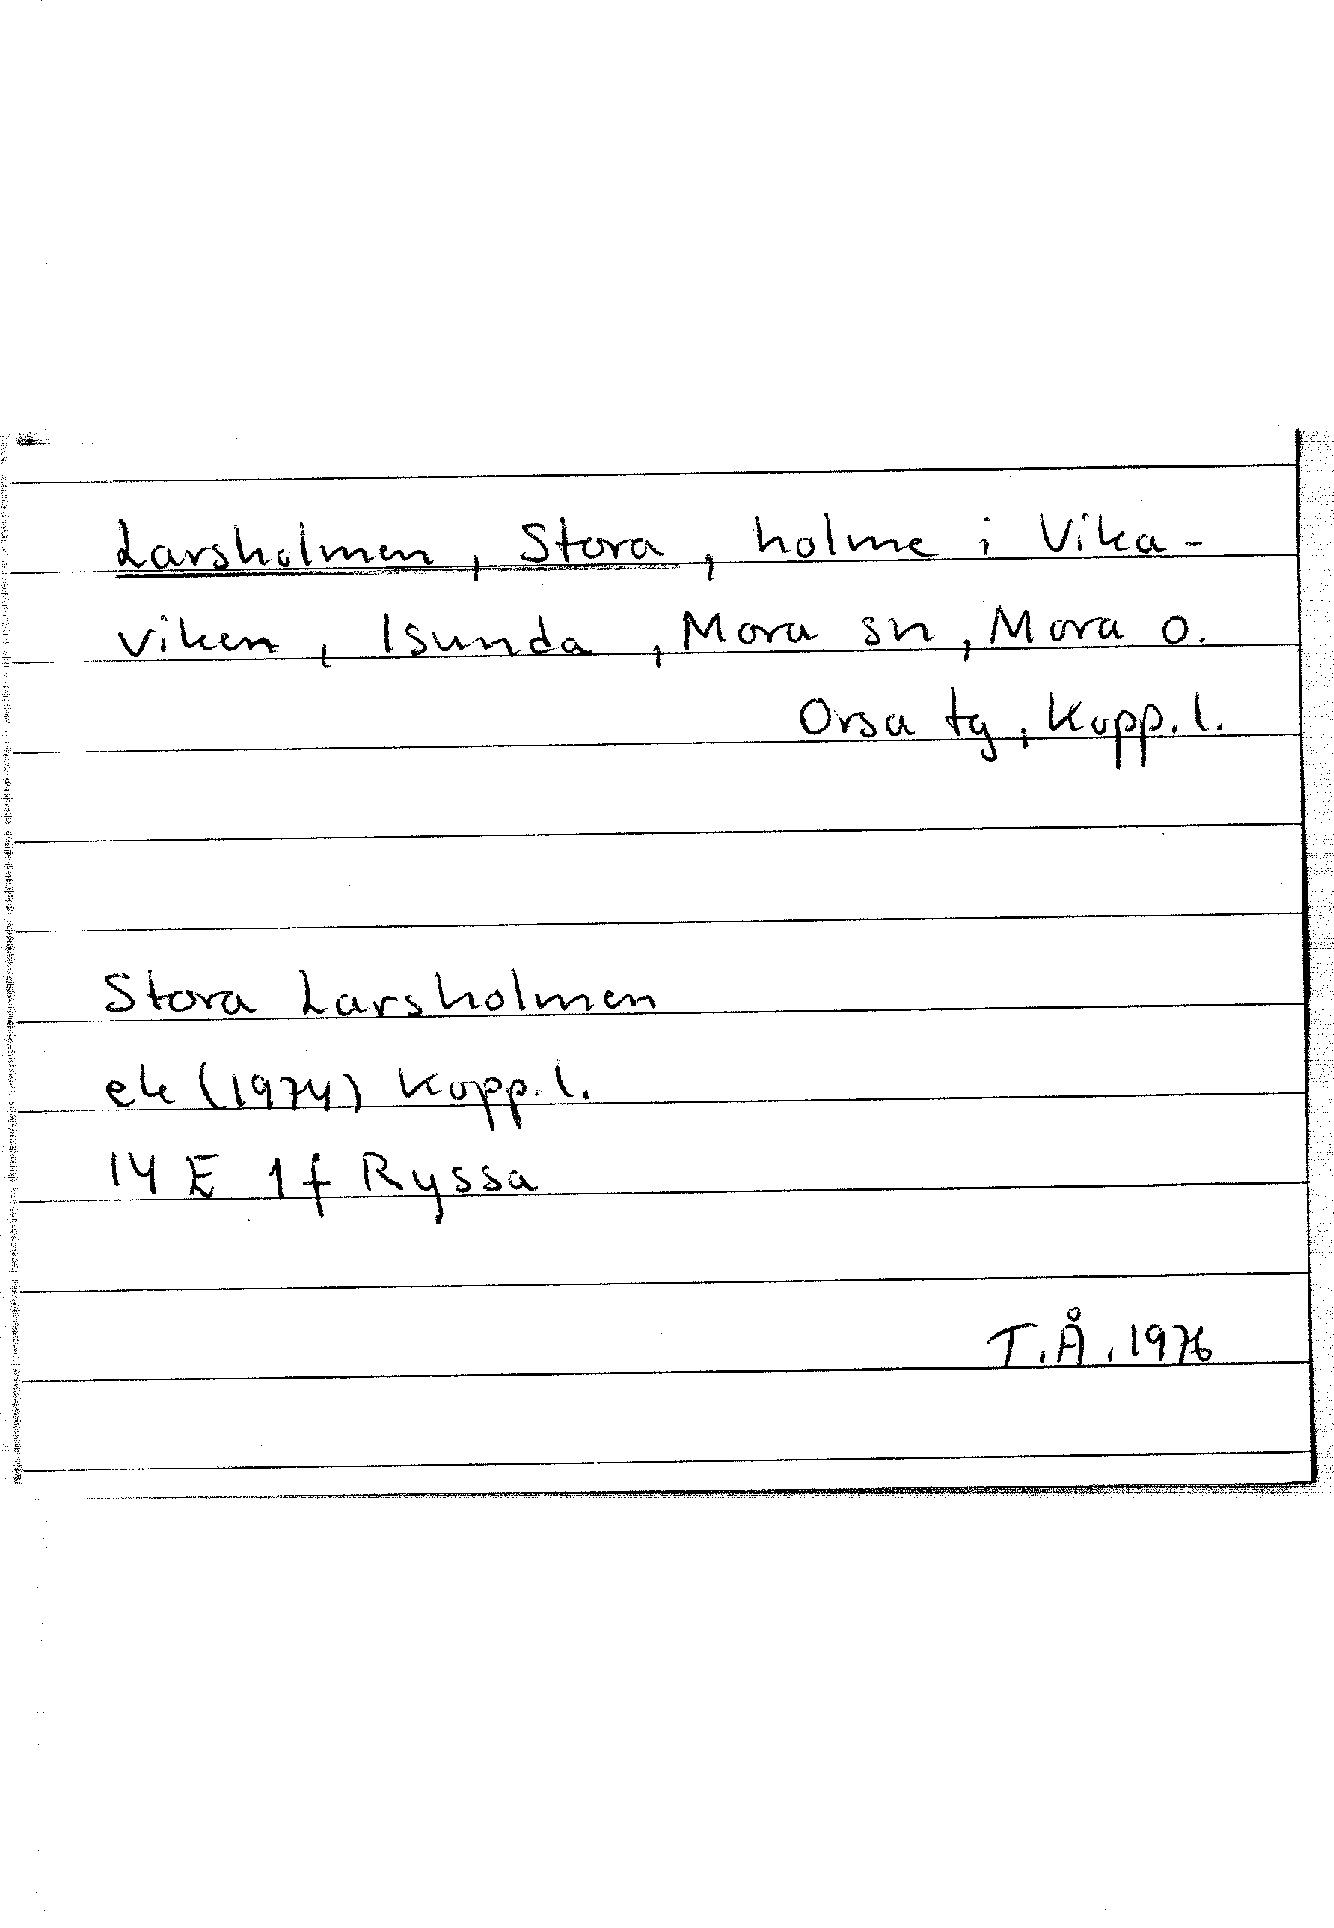 Larsholmen, Stora, holme i Vika-
viken, Isunda, Mora sn, Mora o.
Orsa tg, Kopp. l.
Stora Larsholmen
ek (1974) Kopp. l.
14 E 1f Ryssa
T.Å. 1976